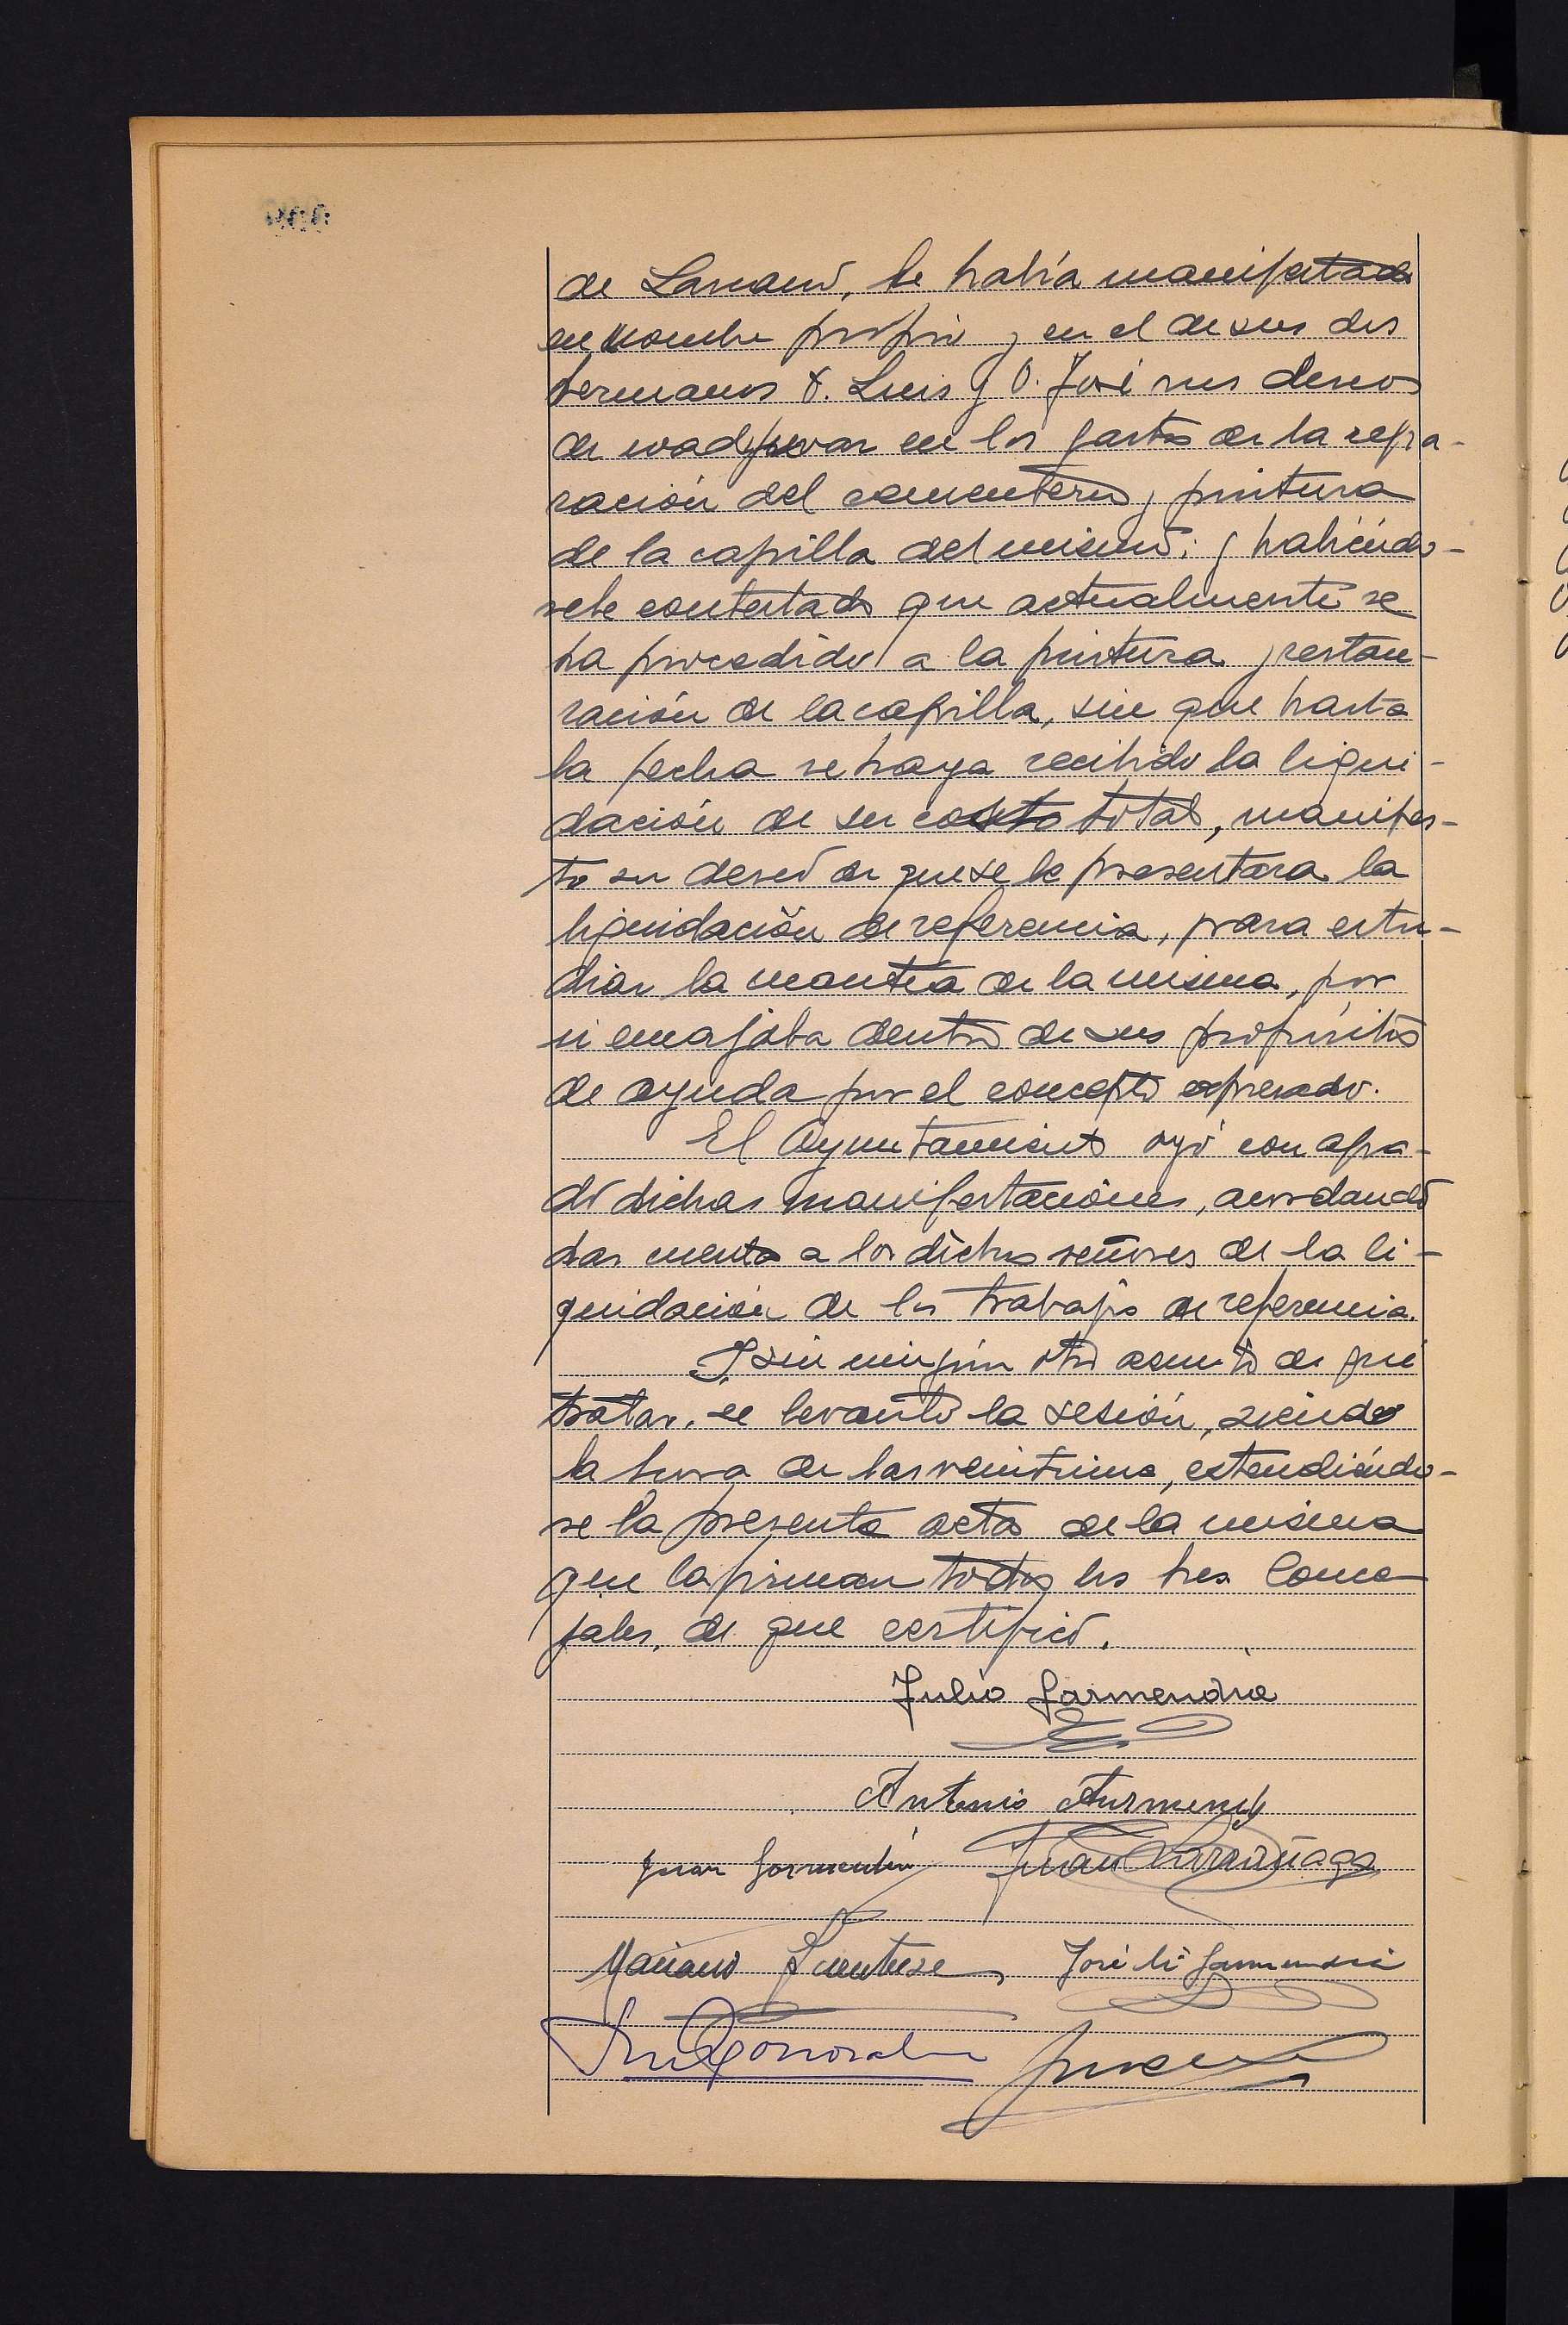 de Larcano, le había manifestado
en nombre propio y en el de sus dos
hermanos D. Luis y D. José sus deseos
de coadyuvar en los gastos de la repa-
ración del cementerio y pintura
de la capilla del mismo; y habiéndo-
sele contestado que actualmente se
ha procedido a la pintura y restau-
ración de la capilla, sin que hasta
la fecha se haya recibido la liqui-
dación de su costo total, manifes-
tó su deseo de que se le presentara la
liquidación de referencia, para estu-
diar la cuantía de la misma, por
si encajaba dentro de sus propósitos
de ayuda por el concepto expresado.
El Ayuntamiento oyó con agra-
do dichas manifestaciones, acordando
dar cuenta a los dichos señores de la li-
quidación de los trabajos de referencia.
Y sin ningún otro asunto de que
tratar, se levantó la sesión, siendo
la hora de las veintiuna, extendiéndo-
se la presente acta de la misma
que la firman todos los Sres. Conce
jales, de que certifico.
Julio Garmendia
Antonio
Juan Garmendia Juan Larrañaga
Mariano José Mª Garmendia